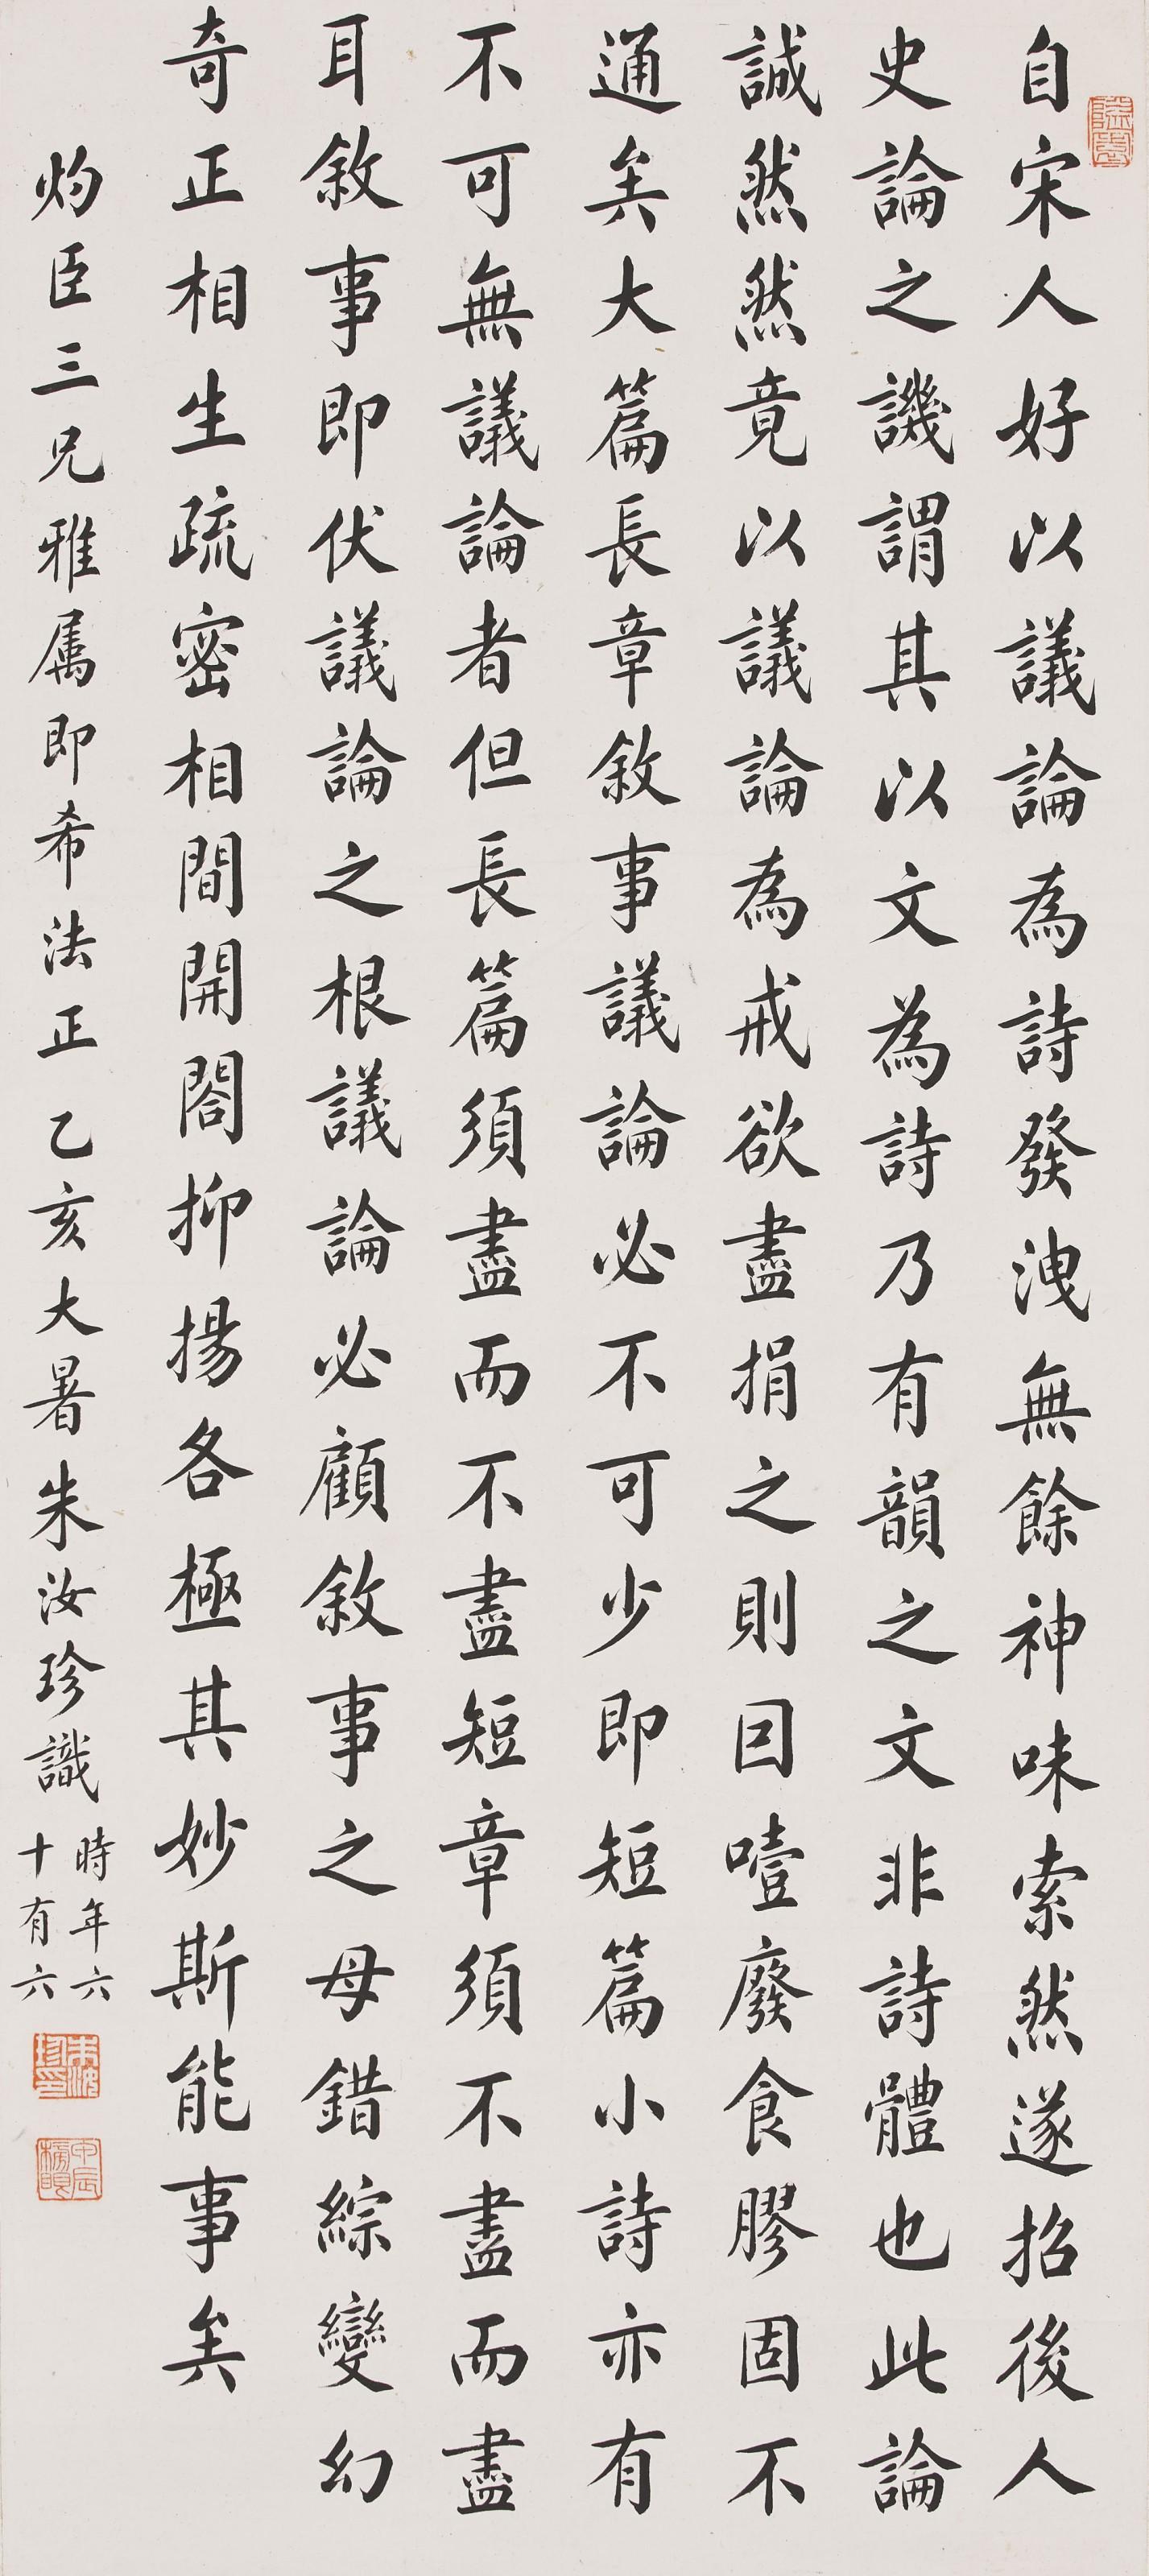 自宋人好以議論為詩發洩無餘神味索然遂招後人
史論之譏謂其以文為詩乃有韻之文非詩體也此論
誠然然竟以議論為戒欲盡捐之則因噎廢食膠固不
通矣大篇長章敘事議論必不可少即短篇小詩亦有
不可無議論者但長篇須盡而不盡短章須不盡而盡
耳敘事即伏議論之根議論必顧敘事之母錯綜變幻
奇正相生疏密相間開閤抑揚各極其妙斯能事矣
灼臣三兄雅屬即希法正乙亥大暑朱汝珍識
時年六
十有六
朱汝珍印
甲辰榜眼